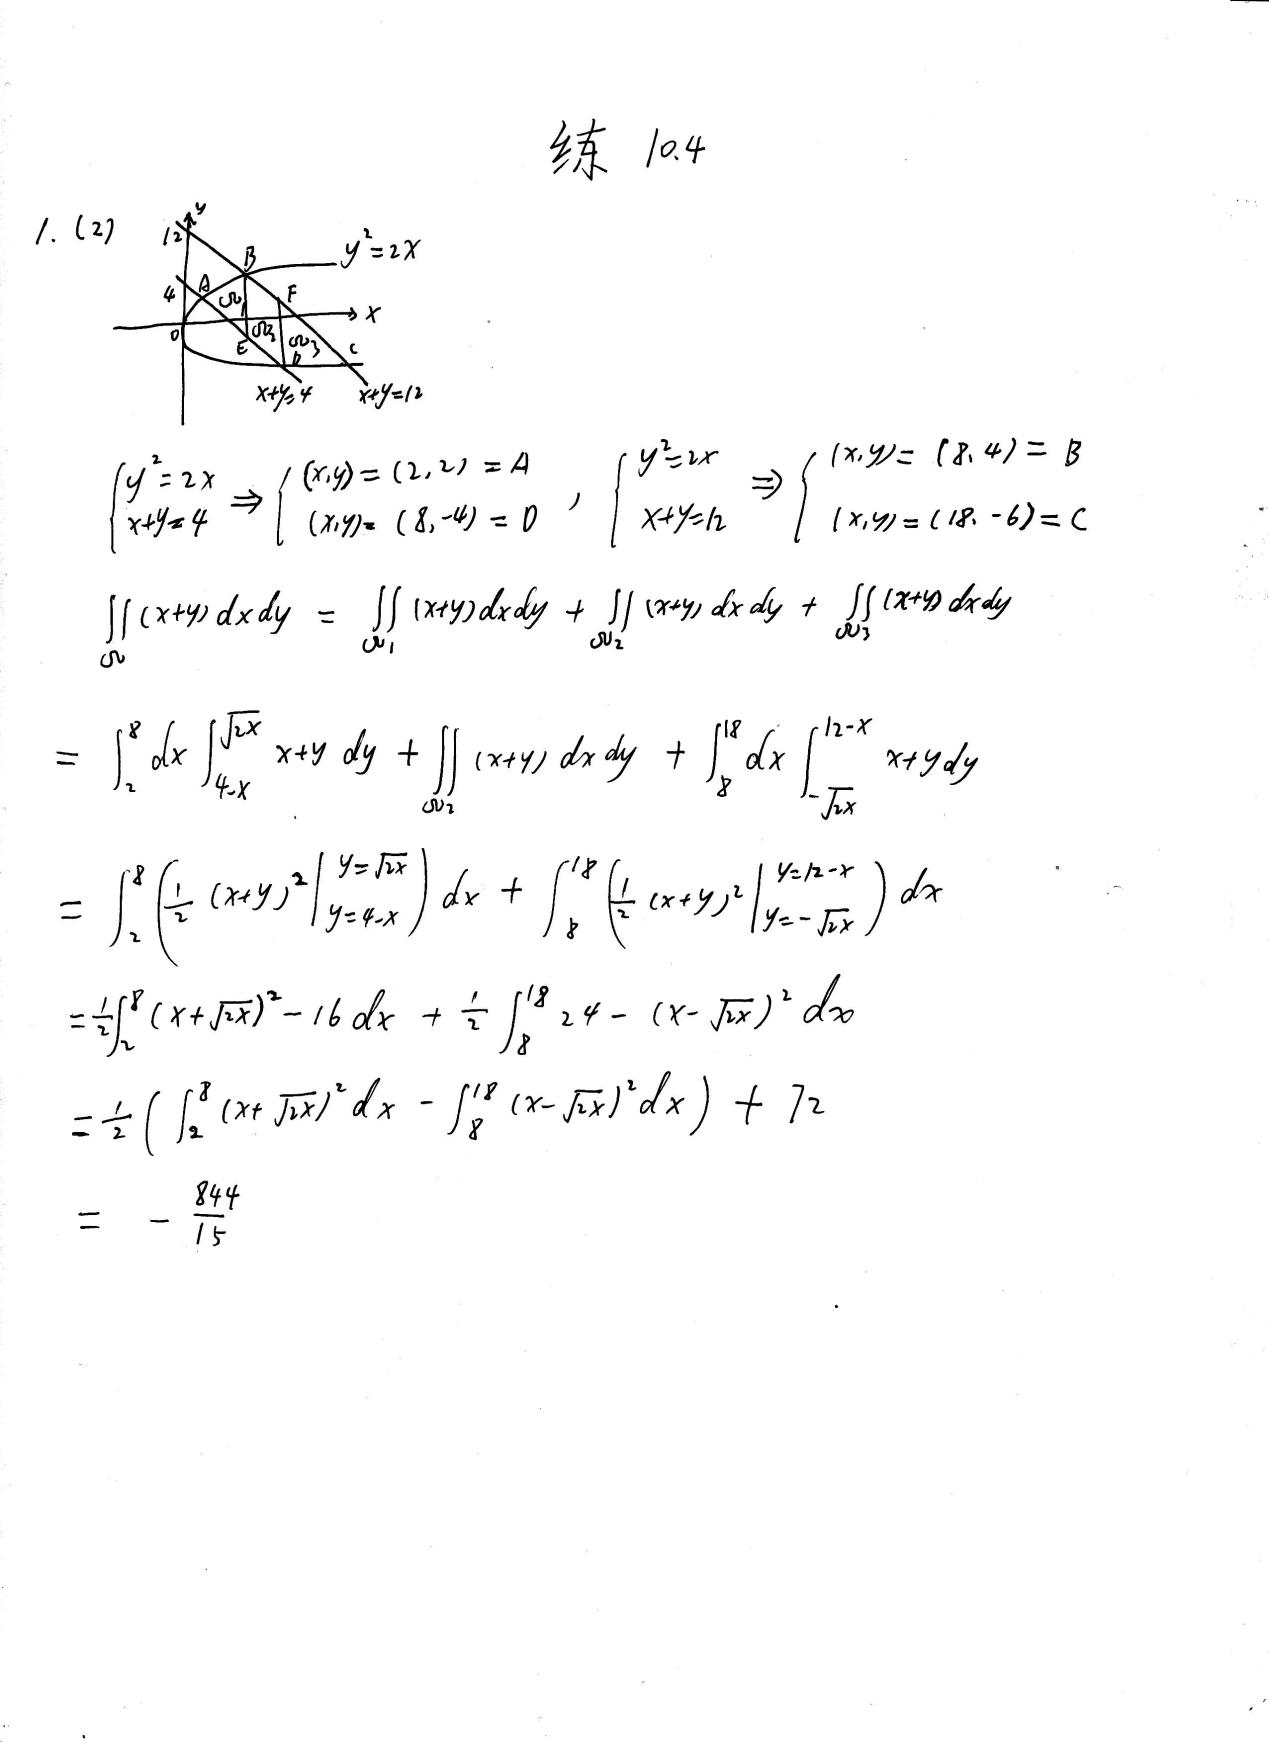 练 10.4
1. (2)
y
12
B
y²=2x
4
A
Ω₁
F
x
0
E
Ω₂
Ω₃
D
C
x+y=4
x+y=12
{ y²=2x
x+y=4 ⇒ { (x,y)=(2,2)=A
(x,y)=(8,-4)=D , { y²=2x
x+y=12 ⇒ { (x,y)=(8,4)=B
(x,y)=(18,-6)=C
∬_Ω (x+y) dxdy = ∬_Ω₁ (x+y)dxdy + ∬_Ω₂ (x+y) dxdy + ∬_Ω₃ (x+y) dxdy
= ∫₂⁸ dx ∫_{4-x}^{√2x} x+y dy + ∬_Ω₂ (x+y) dxdy + ∫₈¹⁸ dx ∫_{-√2x}^{12-x} x+y dy
= ∫₂⁸ ( 1/2 (x+y)² |_{y=4-x}^{y=√2x} ) dx + ∫₈¹⁸ ( 1/2 (x+y)² |_{y=-√2x}^{y=12-x} ) dx
= 1/2 ∫₂⁸ (x+√2x)² - 16 dx + 1/2 ∫₈¹⁸ 24 - (x-√2x)² dx
= 1/2 ( ∫₂⁸ (x+√2x)² dx - ∫₈¹⁸ (x-√2x)² dx ) + 72
= - 844/15